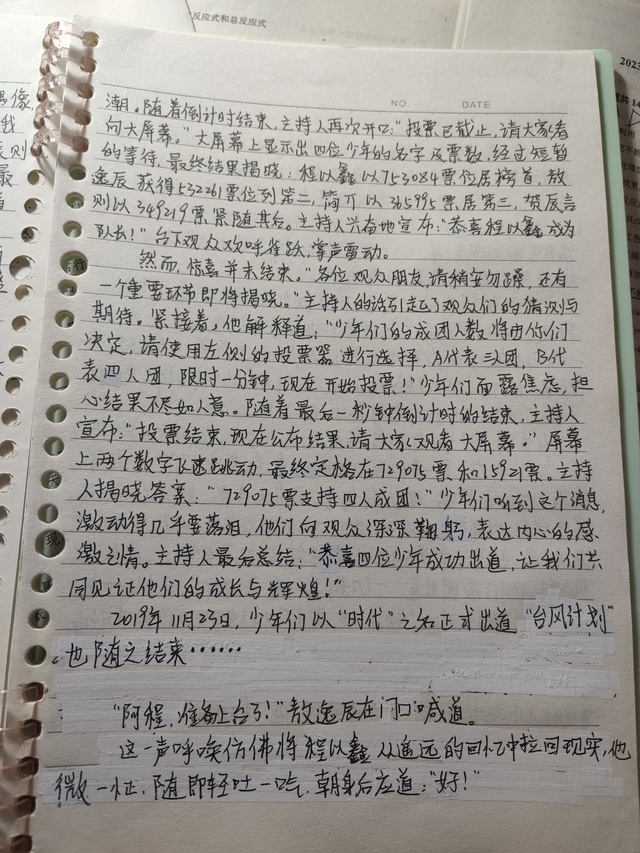 反应式和总反应式
2023
共14
偶像
我
则
最
NO. DATE
潮。随着倒计时结束，主持人再次开口：“投票已截止，请大家看
向大屏幕。”大屏幕上显示出四位少年的名字及票数，经过短暂
的等待，最终结果揭晓：程以鑫以753084票位居榜首，敖
逸辰获得532261票位列第二，简亓以365995票居第三，贺辰言
则以349219票紧随其后。主持人兴奋地宣布：“恭喜程以鑫成为
队长！”台下观众欢呼雀跃，掌声雷动。
然而，惊喜并未结束。“各位观众朋友，请稍安勿躁，还有
一个重要环节即将揭晓。”主持人的话引起了观众们的猜测与
期待。紧接着，他解释道：“少年们的成团人数将由你们
决定，请使用左侧的投票器进行选择，A代表三人团，B代
表四人团，限时一分钟，现在开始投票！”少年们面露焦虑，担
心结果不尽如人意。随着最后一秒钟倒计时的结束，主持人
宣布：“投票结束，现在公布结果，请大家观看大屏幕。”屏幕
上两个数字飞速跳动，最终定格在729075票和15921票。主持
人揭晓答案：“729075票支持四人成团！”少年们听到这个消息，
激动得几乎要落泪，他们向观众深深鞠躬，表达内心的感
激之情。主持人最后总结：“恭喜四位少年成功出道，让我们共
同见证他们的成长与辉煌！”
2019年11月23日，少年们以“时代”之名正式出道“台风计划”
也随之结束……
“阿程，准备上台了！”敖逸辰在门口喊道。
这一声呼唤仿佛将程以鑫从遥远的回忆中拉回现实，他
微一怔，随即轻吐一口气，朝身后应道：“好！”